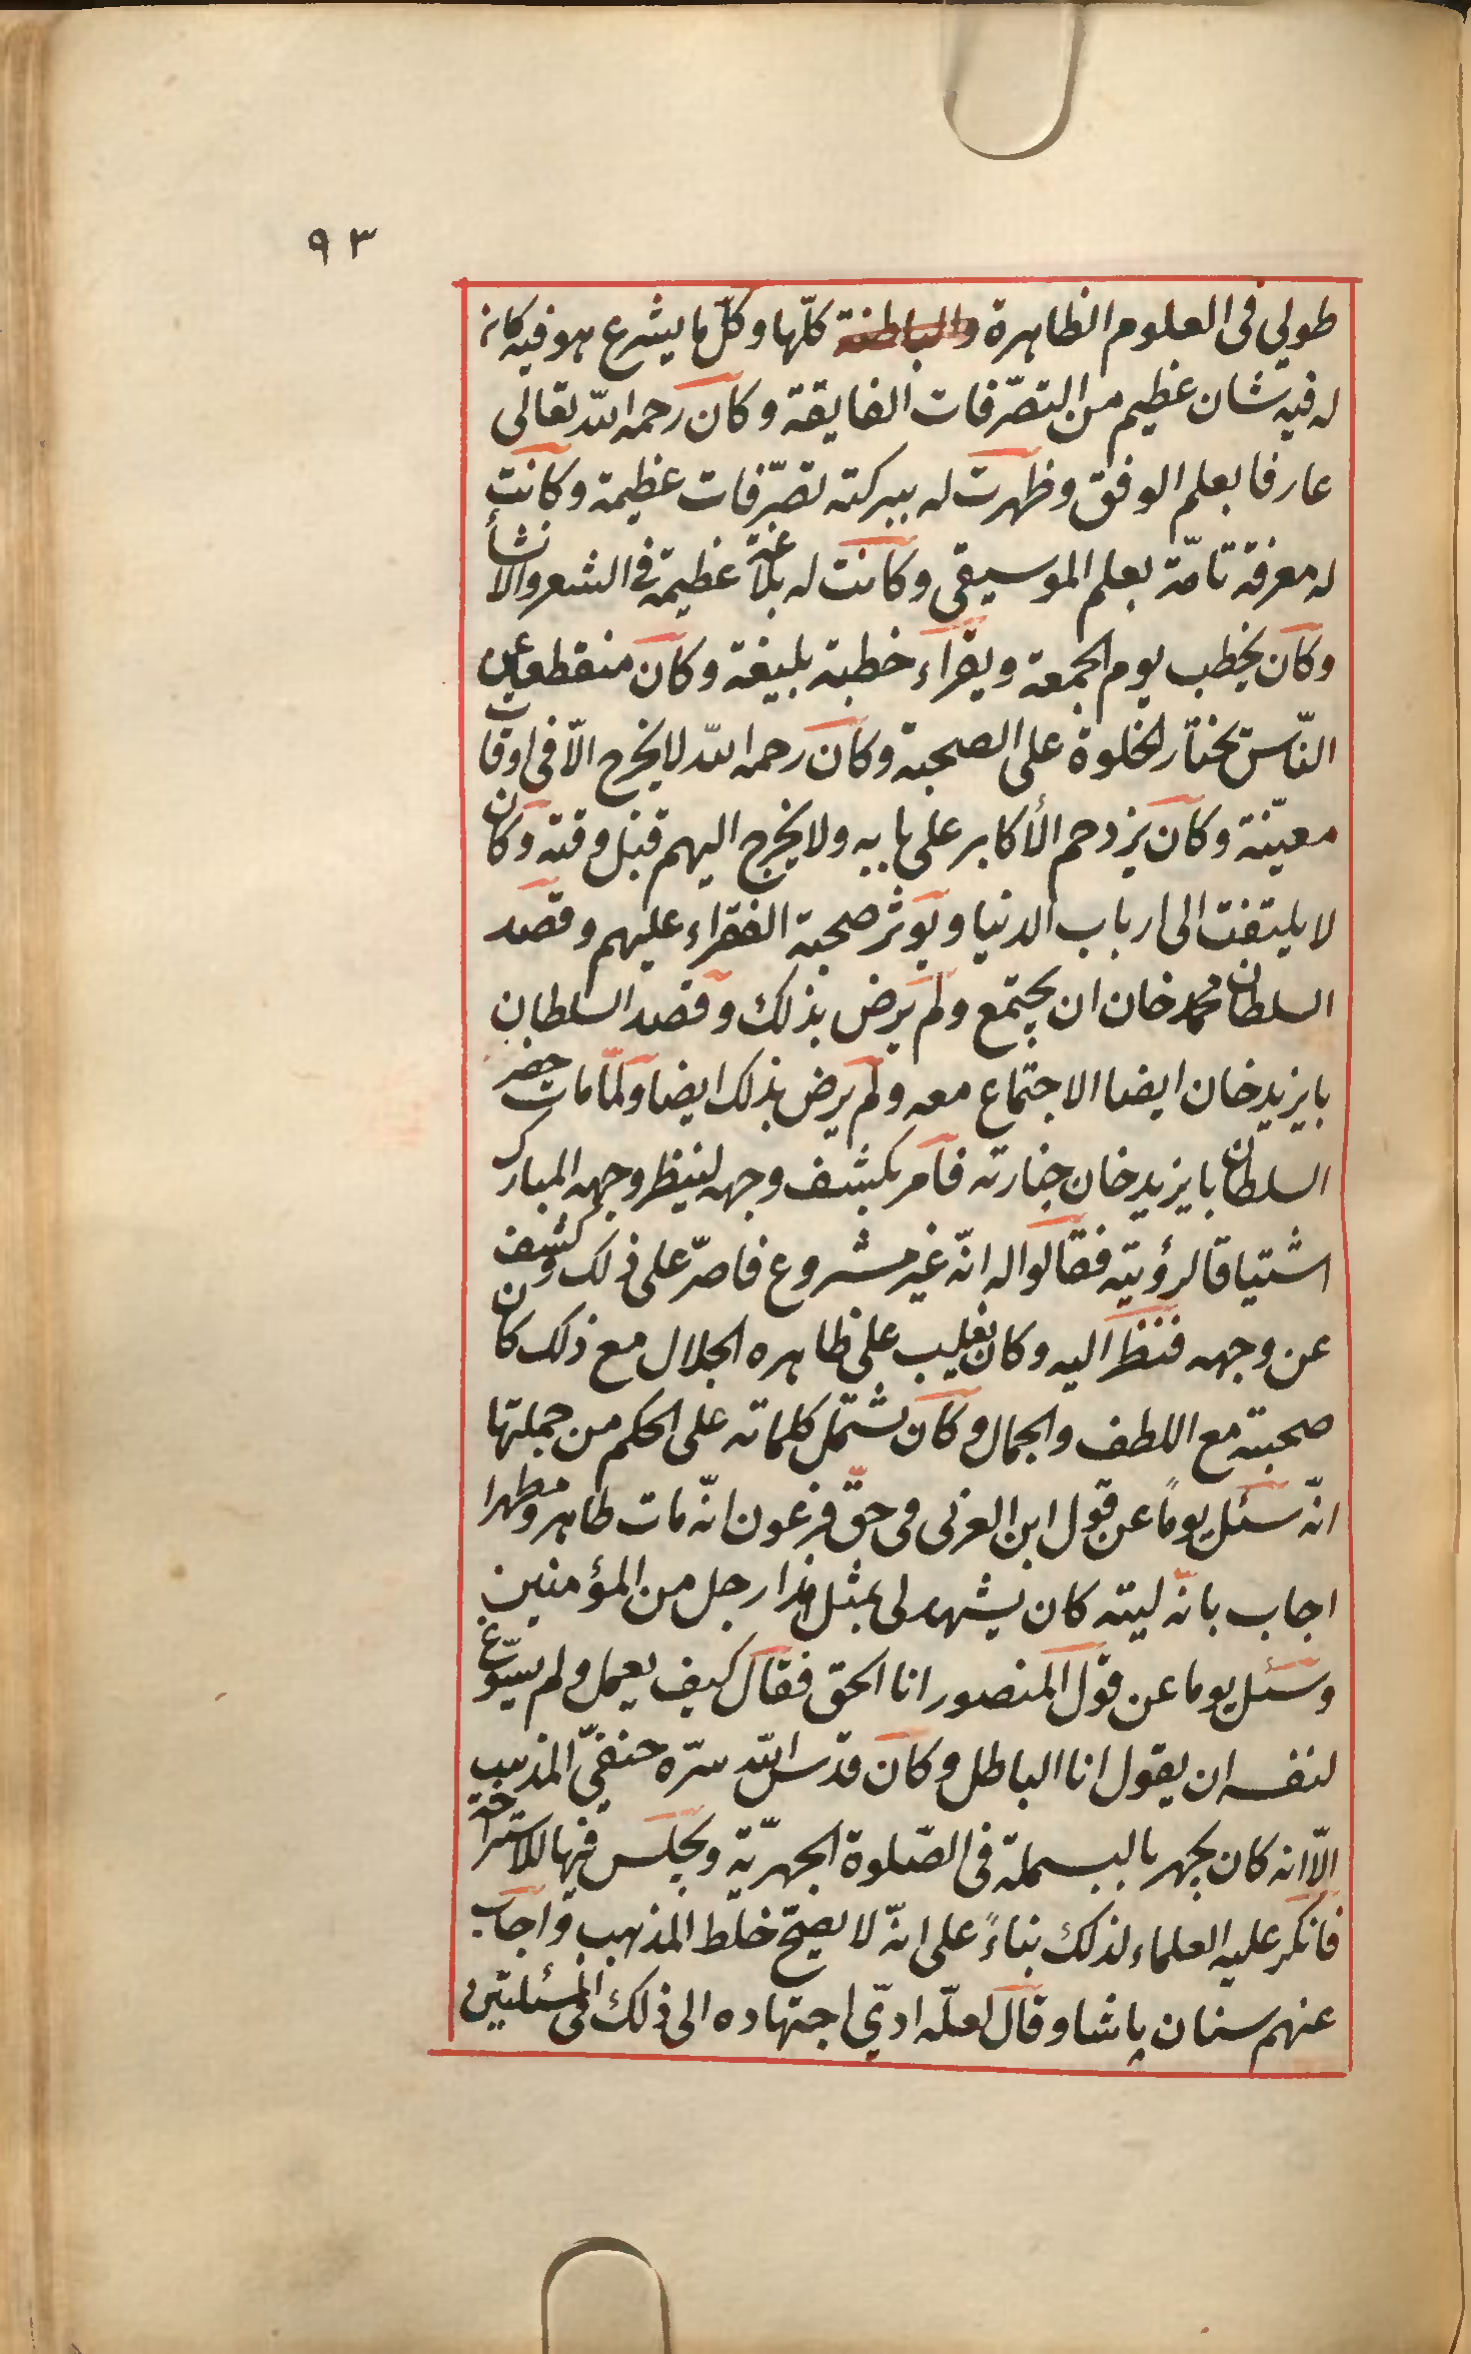 ٩٣
طولي فى العلوم الظاهرة والباطنة كلّها وكلّ ما يشرع هو فيه كان
له فيه شان عظيم من التصرّفات الفايقة وكان رحمه الله تعالى
عارفا بعلم الوفق وظهرت له ببركته تصرّفات عظيمة وكانت
له معرفة تامّة بعلم الموسيقى وكانت له بلاغة عظيمة فى الشعر والانشأ
وكان يخطب يوم الجمعة ويقراء خطبة بليغة وكان منقطعا عن
النّاس يختار الخلوة على الصحبة وكان رحمه الله لا يخرج الّا فى اوقات
معيّنة وكان يزدحم الأكابر على بابه ولا يخرج اليهم قبل وقته وكان
لا يلتفت الى ارباب الدنيا ويؤثر صحبة الفقراء عليهم وقصد
السلطان محمد خان ان يجتمع ولم يرض بذلك وقصد السلطان
بايزيد خان ايضا الاجتماع معه ولم يرض بذلك ايضا ولمّا مات حضر
السلطان بايزيد خان جنازته فامر بكشف وجهه لينظر وجهه المبارك
اشتياقا لرؤيته فقالوا له انّه غير مشروع فاصرّ على ذلك وكشف
عن وجهه فنظر اليه وكان يغلب على ظاهره الجلال مع ذلك كان
صحبته مع اللطف والجمال وكان تشتمل كلماته على الحكم من جملتها
انّه سئل يوماً عن قول ابن العربى فى حقّ فرعون انّه مات طاهر ومطهرا
اجاب بانّه ليته كان يشهد لى بمثل هذا رجل من المؤمنين
وسئل يوما عن قول المنصور انا الحق فقال كيف يعمل ولم يسوّغ
لنفسه ان يقول انا الباطل وكان قدّس الله سرّه حنفىّ المذهب
الّا انه كان يجهر بالبسملة فى الصّلوة الجهريّة ويجلس فيها للاستراحة
فانكر عليه العلماء لذلك بناءً على انّه لا يصحّ خلط المذهب واجاب
عنهم سنان پاشا وقال لعلّه ادّي اجتهاده الى ذلك فى المسئلتين